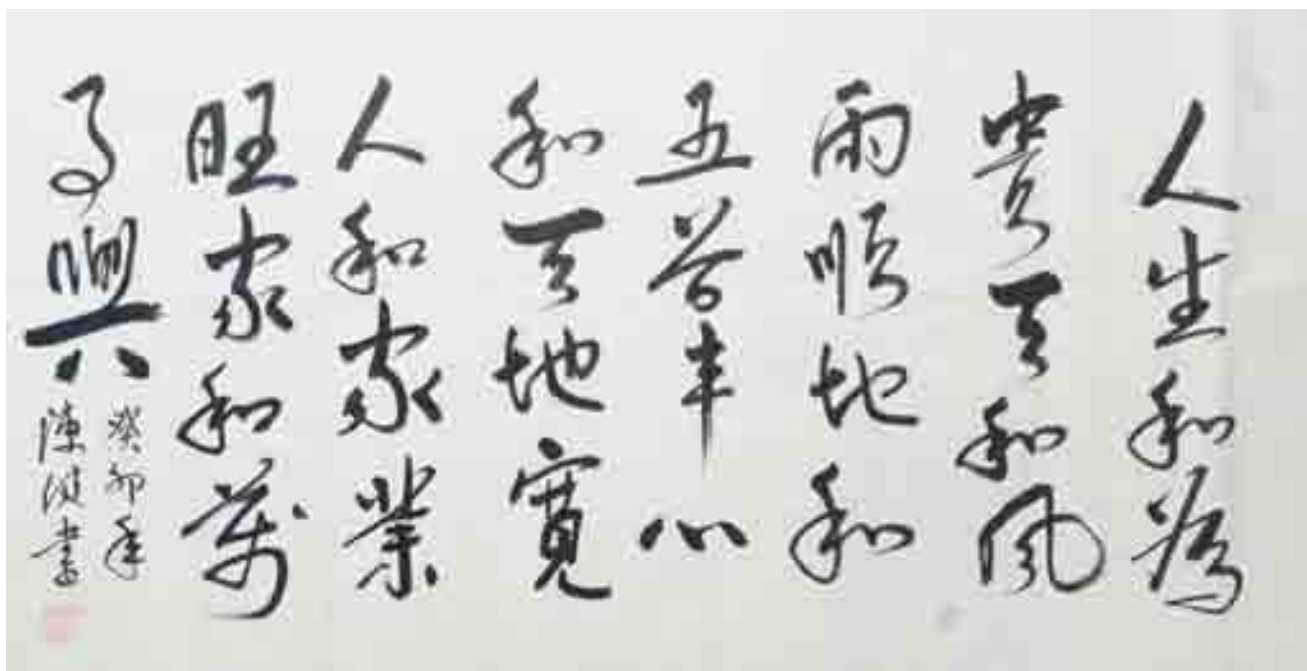 人生和為
貴天和風
雨順地和
五谷丰心
和天地寬
人和家業
旺家和萬
事興
癸卯年
陳書